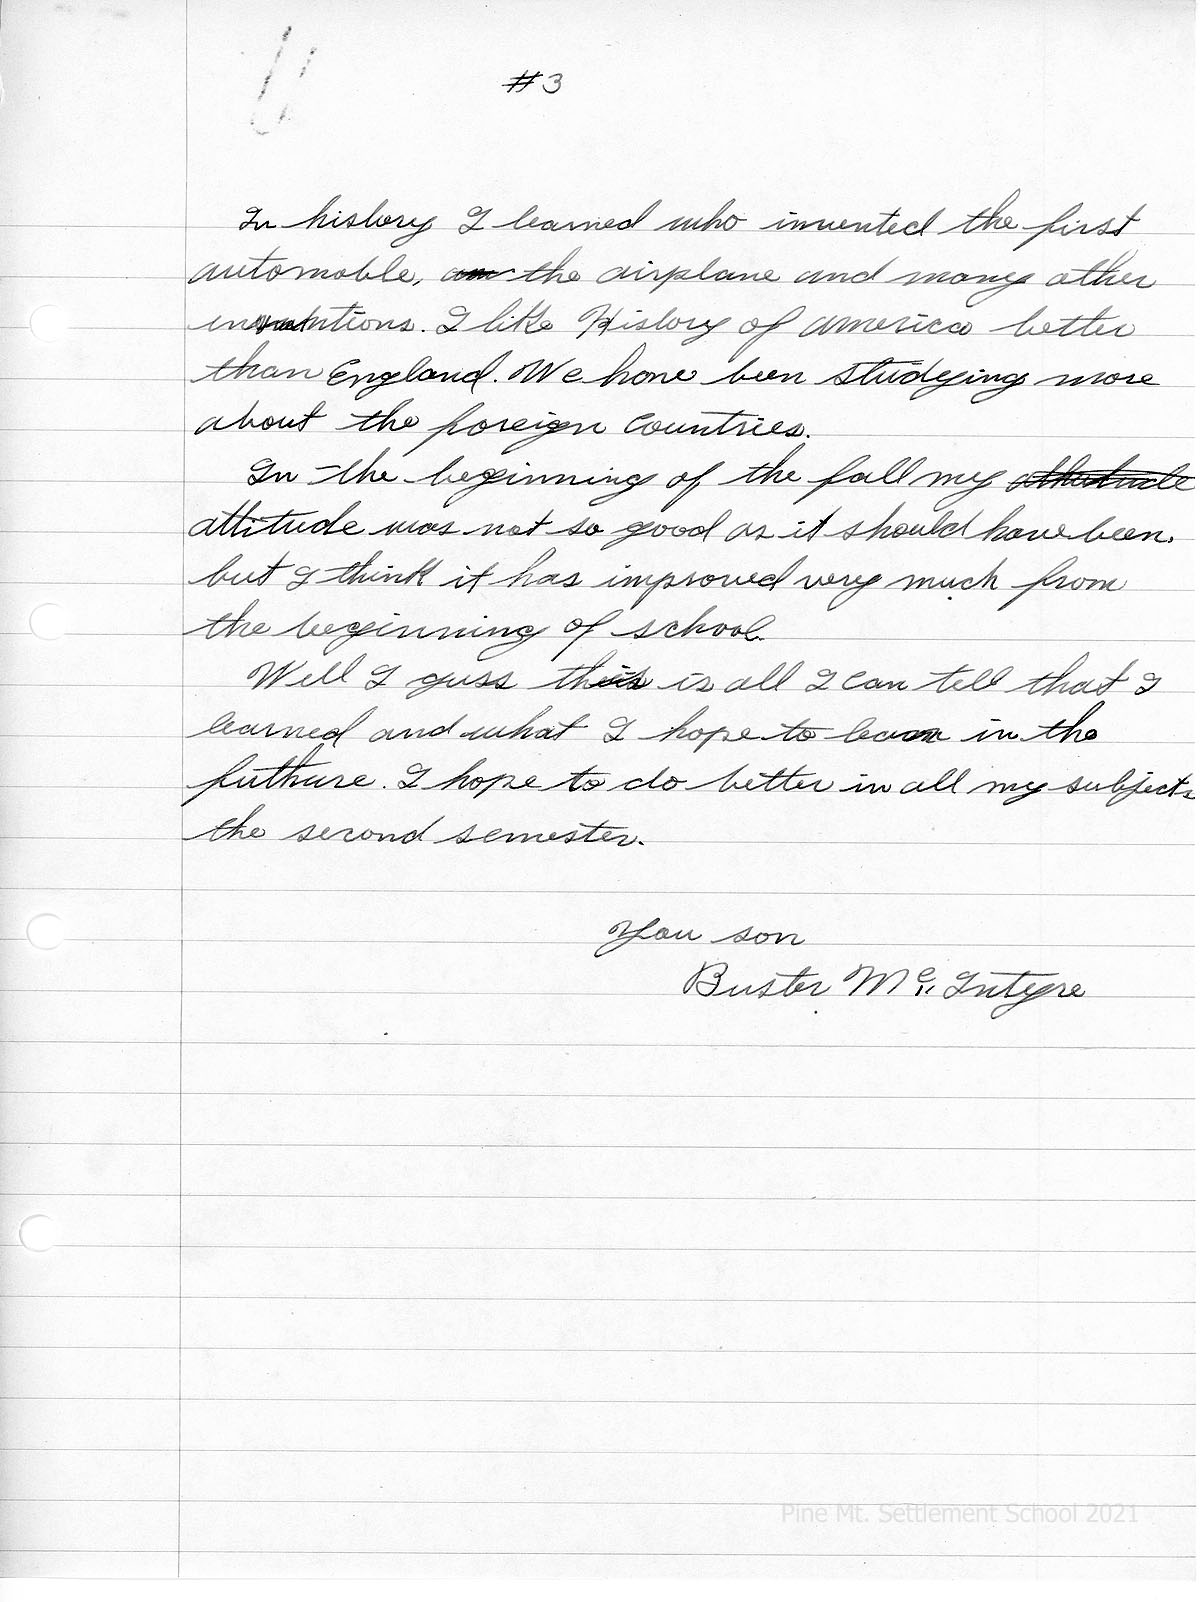 #3
In history I learned who invented the first
automoble, the airplane and many other
inventions. I like History of america better
than England. We have been studying more
about the foreign countries.
In the beginning of the fall my
attitude was not so good as it should have been.
but I think it has improved very much from
the beginning of school.
Well I guss this is all I can tell that I
learned and what I hope to learn in the
futhure. I hope to do better in all my subjects
the second semester.
You son
Buster Mc Intyre
Pine Mt. Settlement School 2021